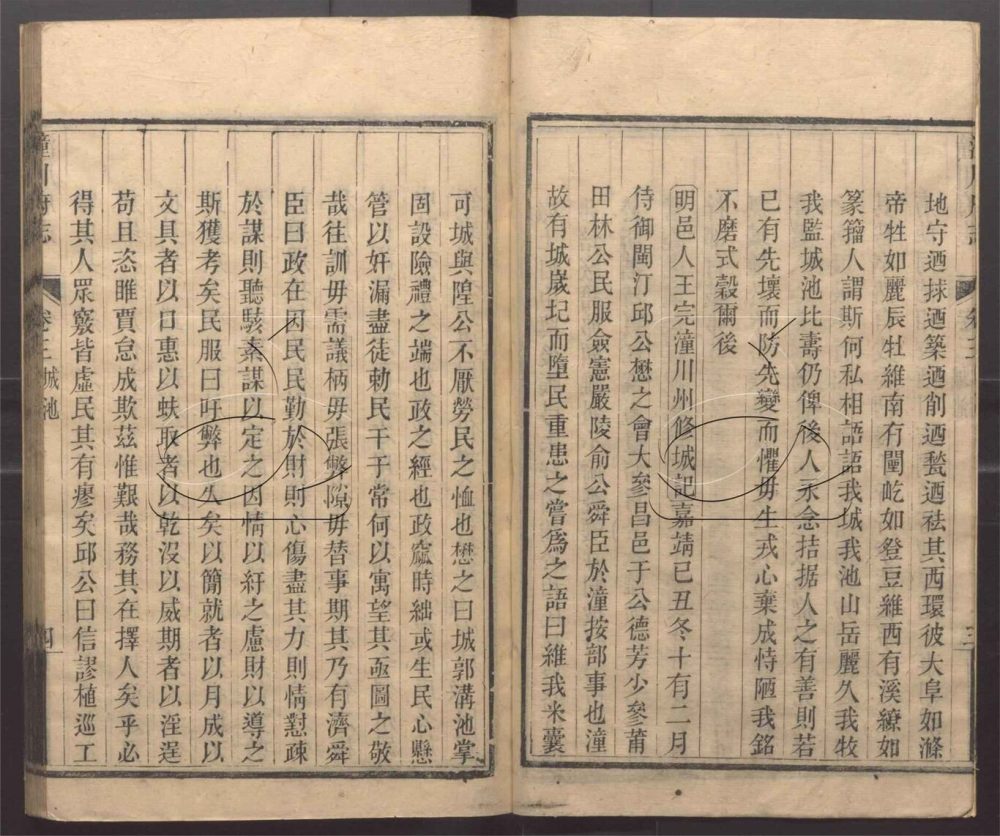 地守迺捄迺築迺削迺甃迺祛其西環彼大阜如滌
帝牲如麗辰牡維南冇闉屹如登豆維西有溪繚如
篆籀人謂斯何私相語語我城我池山岳麗久我牧
我監城池比壽仍俾後人永念拮据人之有善則若
已有先壞而防先變而懼毋生戎心棄成恃陋我銘
不磨式穀爾後
明邑人王完潼川州修城記嘉靖己丑冬十有二月
侍御閩汀邱公懋之會大參昌邑于公德芳少參莆
田林公民服僉憲嚴陵俞公舜臣於潼按部事也潼
故有城嵗圮而墮民重患之嘗爲之語曰維我米囊
可城與隍公不厭勞民之恤也懋之曰城郭溝池掌
固設險禮之端也政之經也政窳時絀或生民心懸
管以奸漏盡徒勅民干于常何以寓望其亟圖之敬
哉往訓毋需議柄毋張獘隙毋替事期其乃有濟舜
臣曰政在因民民勤於財則心傷盡其力則情懟疎
於謀則聽駭素謀以定之因情以紓之慮財以導之
斯獲考矣民服曰吁弊也久矣以簡就者以月成以
文具者以口惠以蚨取者以乾沒以威期者以淫逞
苟且恣睢賈怠成欺茲惟艱哉務其在擇人矣乎必
得其人眾竅皆虛民其有瘳矣邱公曰信謬植巡工
潼川府志
卷三 城池
四